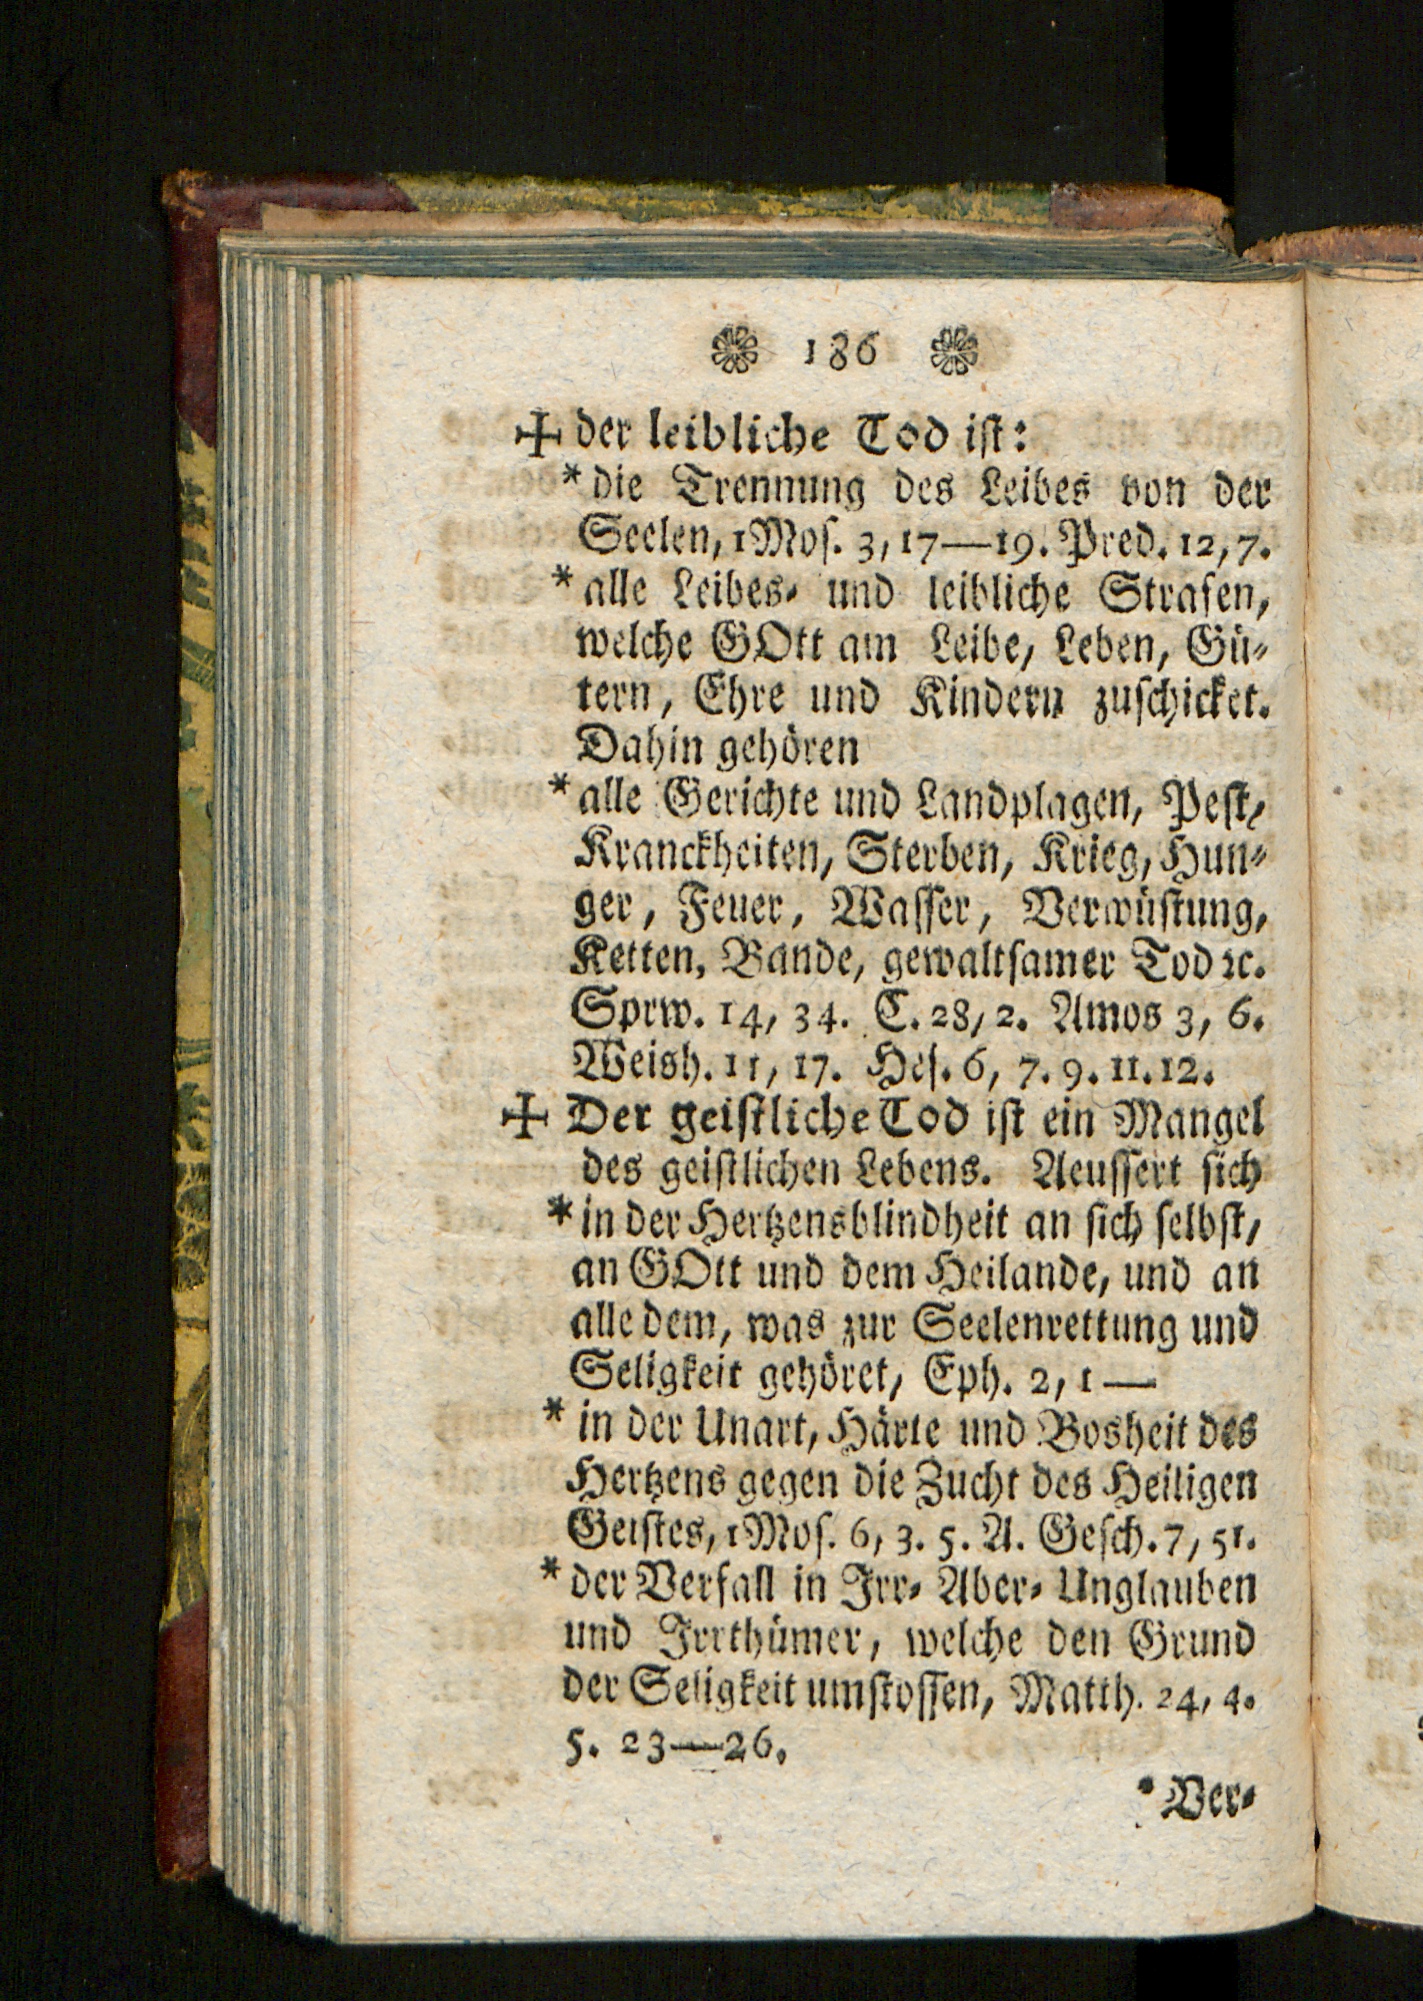 186
✢ der leibliche Tod ist:
* die Trennung des Leibes von der
Seelen, 1Mos. 3, 17—19. Pred. 12, 7.
* alle Leibes- und leibliche Strafen,
welche GOtt am Leibe, Leben, Gü-
tern, Ehre und Kindern zuschicket.
Dahin gehören
* alle Gerichte und Landplagen, Pest,
Kranckheiten, Sterben, Krieg, Hun-
ger, Feuer, Wasser, Verwüstung,
Ketten, Bande, gewaltsamer Tod ꝛc.
Sprw. 14, 34. C. 28, 2. Amos 3, 6.
Weish. 11, 17. Hes. 6, 7. 9. 11. 12.
✢ Der geistliche Tod ist ein Mangel
des geistlichen Lebens. Aeussert sich
* in der Hertzensblindheit an sich selbst,
an GOtt und dem Heilande, und an
alle dem, was zur Seelenrettung und
Seligkeit gehöret, Eph. 2, 1—
* in der Unart, Härte und Bosheit des
Hertzens gegen die Zucht des Heiligen
Geistes, 1Mos. 6, 3. 5. A. Gesch. 7, 51.
* der Verfall in Irr- Aber- Unglauben
und Irrthümer, welche den Grund
der Seligkeit umstossen, Matth. 24, 4.
5. 23—26.
* Ver-